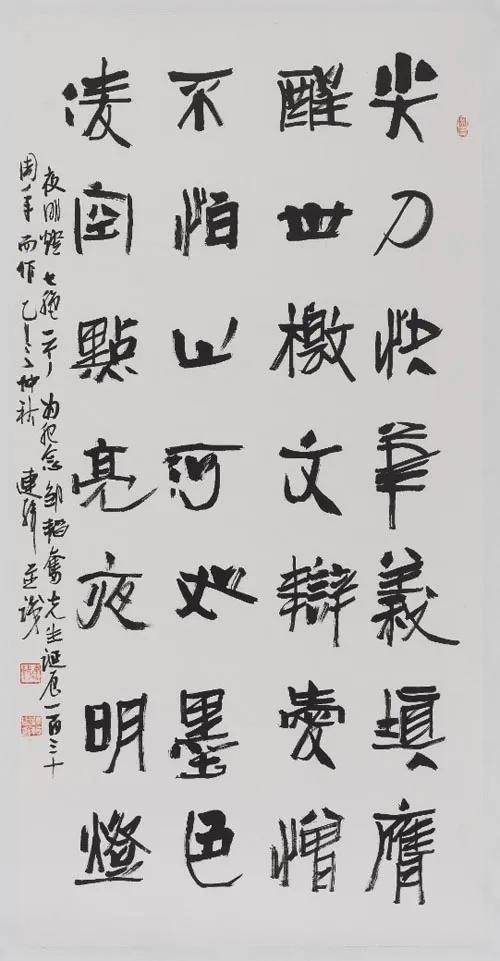 尖刀快筆義填膺
醒世檄文辯愛憎
不怕山河如墨色
凌空點亮夜明燈
夜明燈 七絕一首 為紀念鄒韜奮先生誕辰一百三十
周年而作 乙巳仲秋 連輯並識